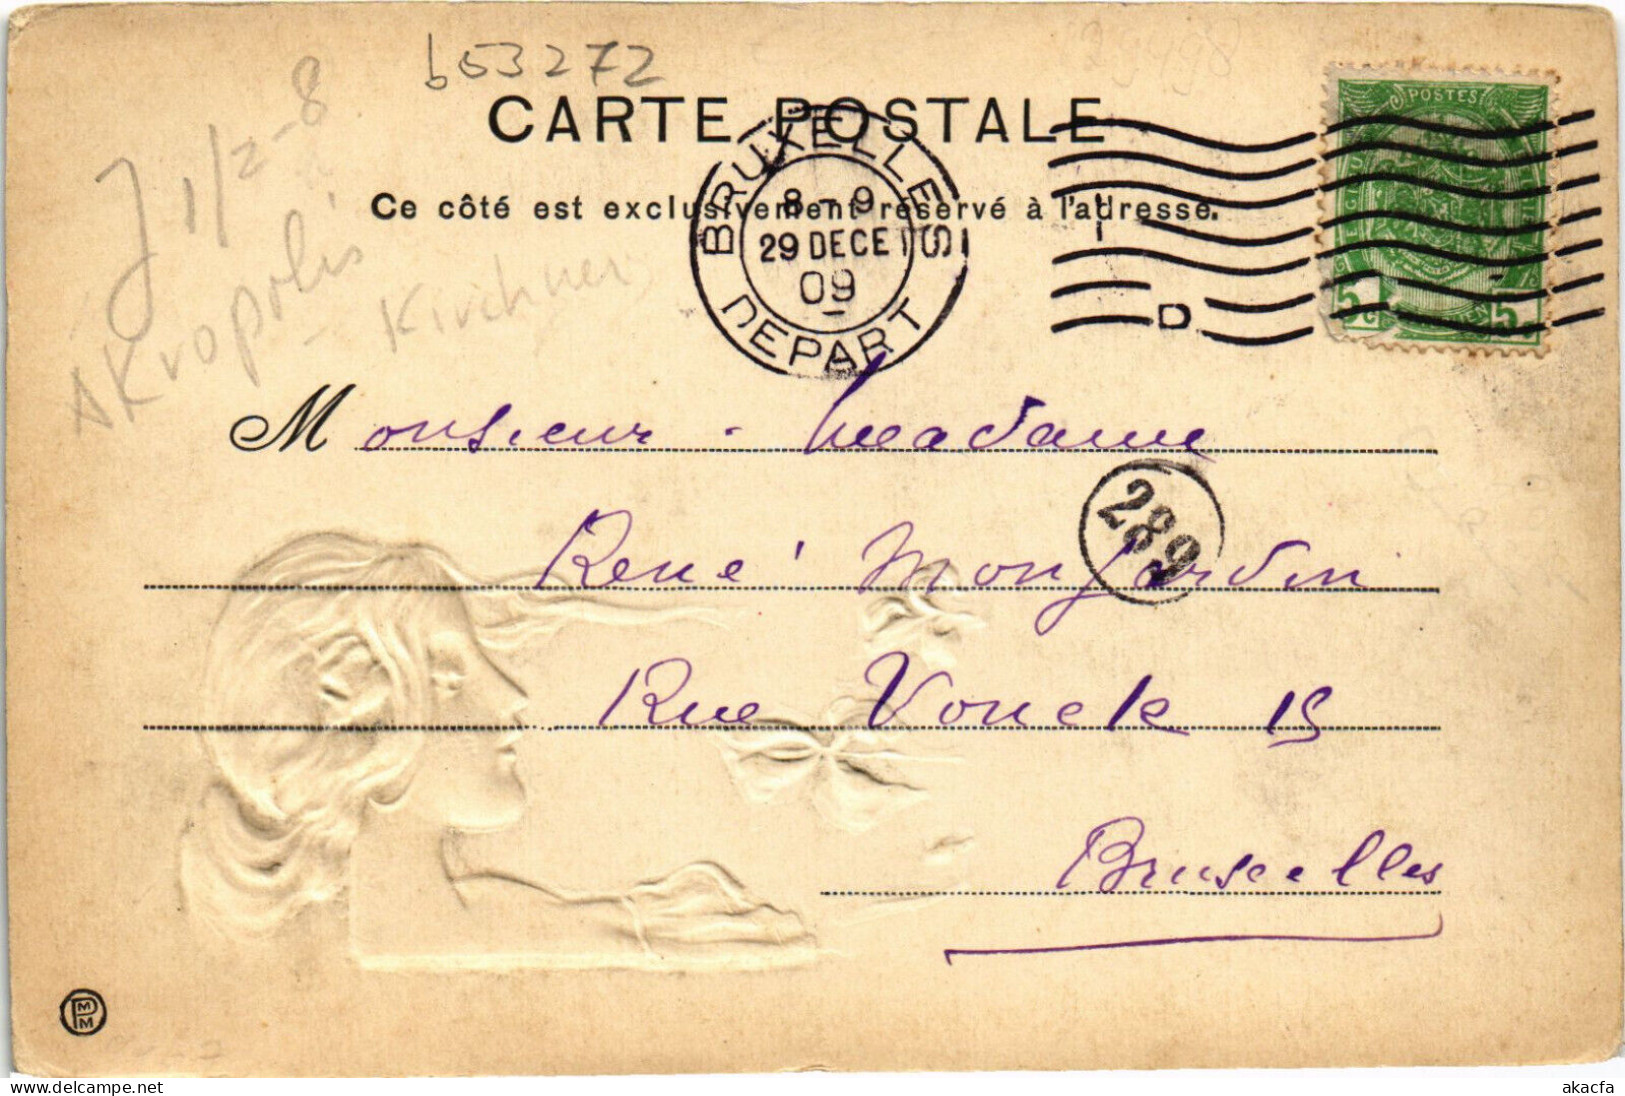 b053272
29498
CARTE POSTALE
J 1/2-8
Akropolis
- Kirchner
Ce côté est exclusivement réservé à l'adresse.
BRUXELLES
8-9
29 DECE
09
DEPART
POSTES
5c 5c
D
Monsieur - Madame
289
René Monjardin
Rue Vonck 15
Bruxelles
PMM
akacfa